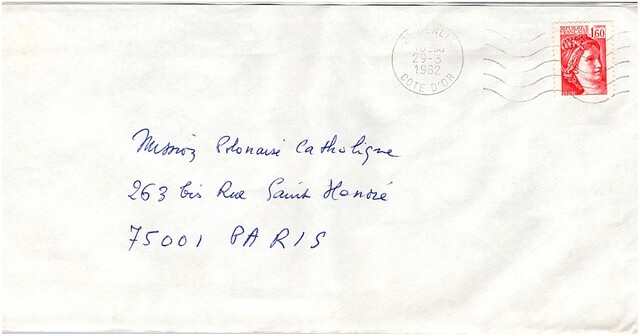 16 H
29-3
1982
COTE D'OR
REPUBLIQUE
FRANCAISE
1,60
Mission Polonaise Catholique
263 bis Rue Saint Honoré
75001 PARIS